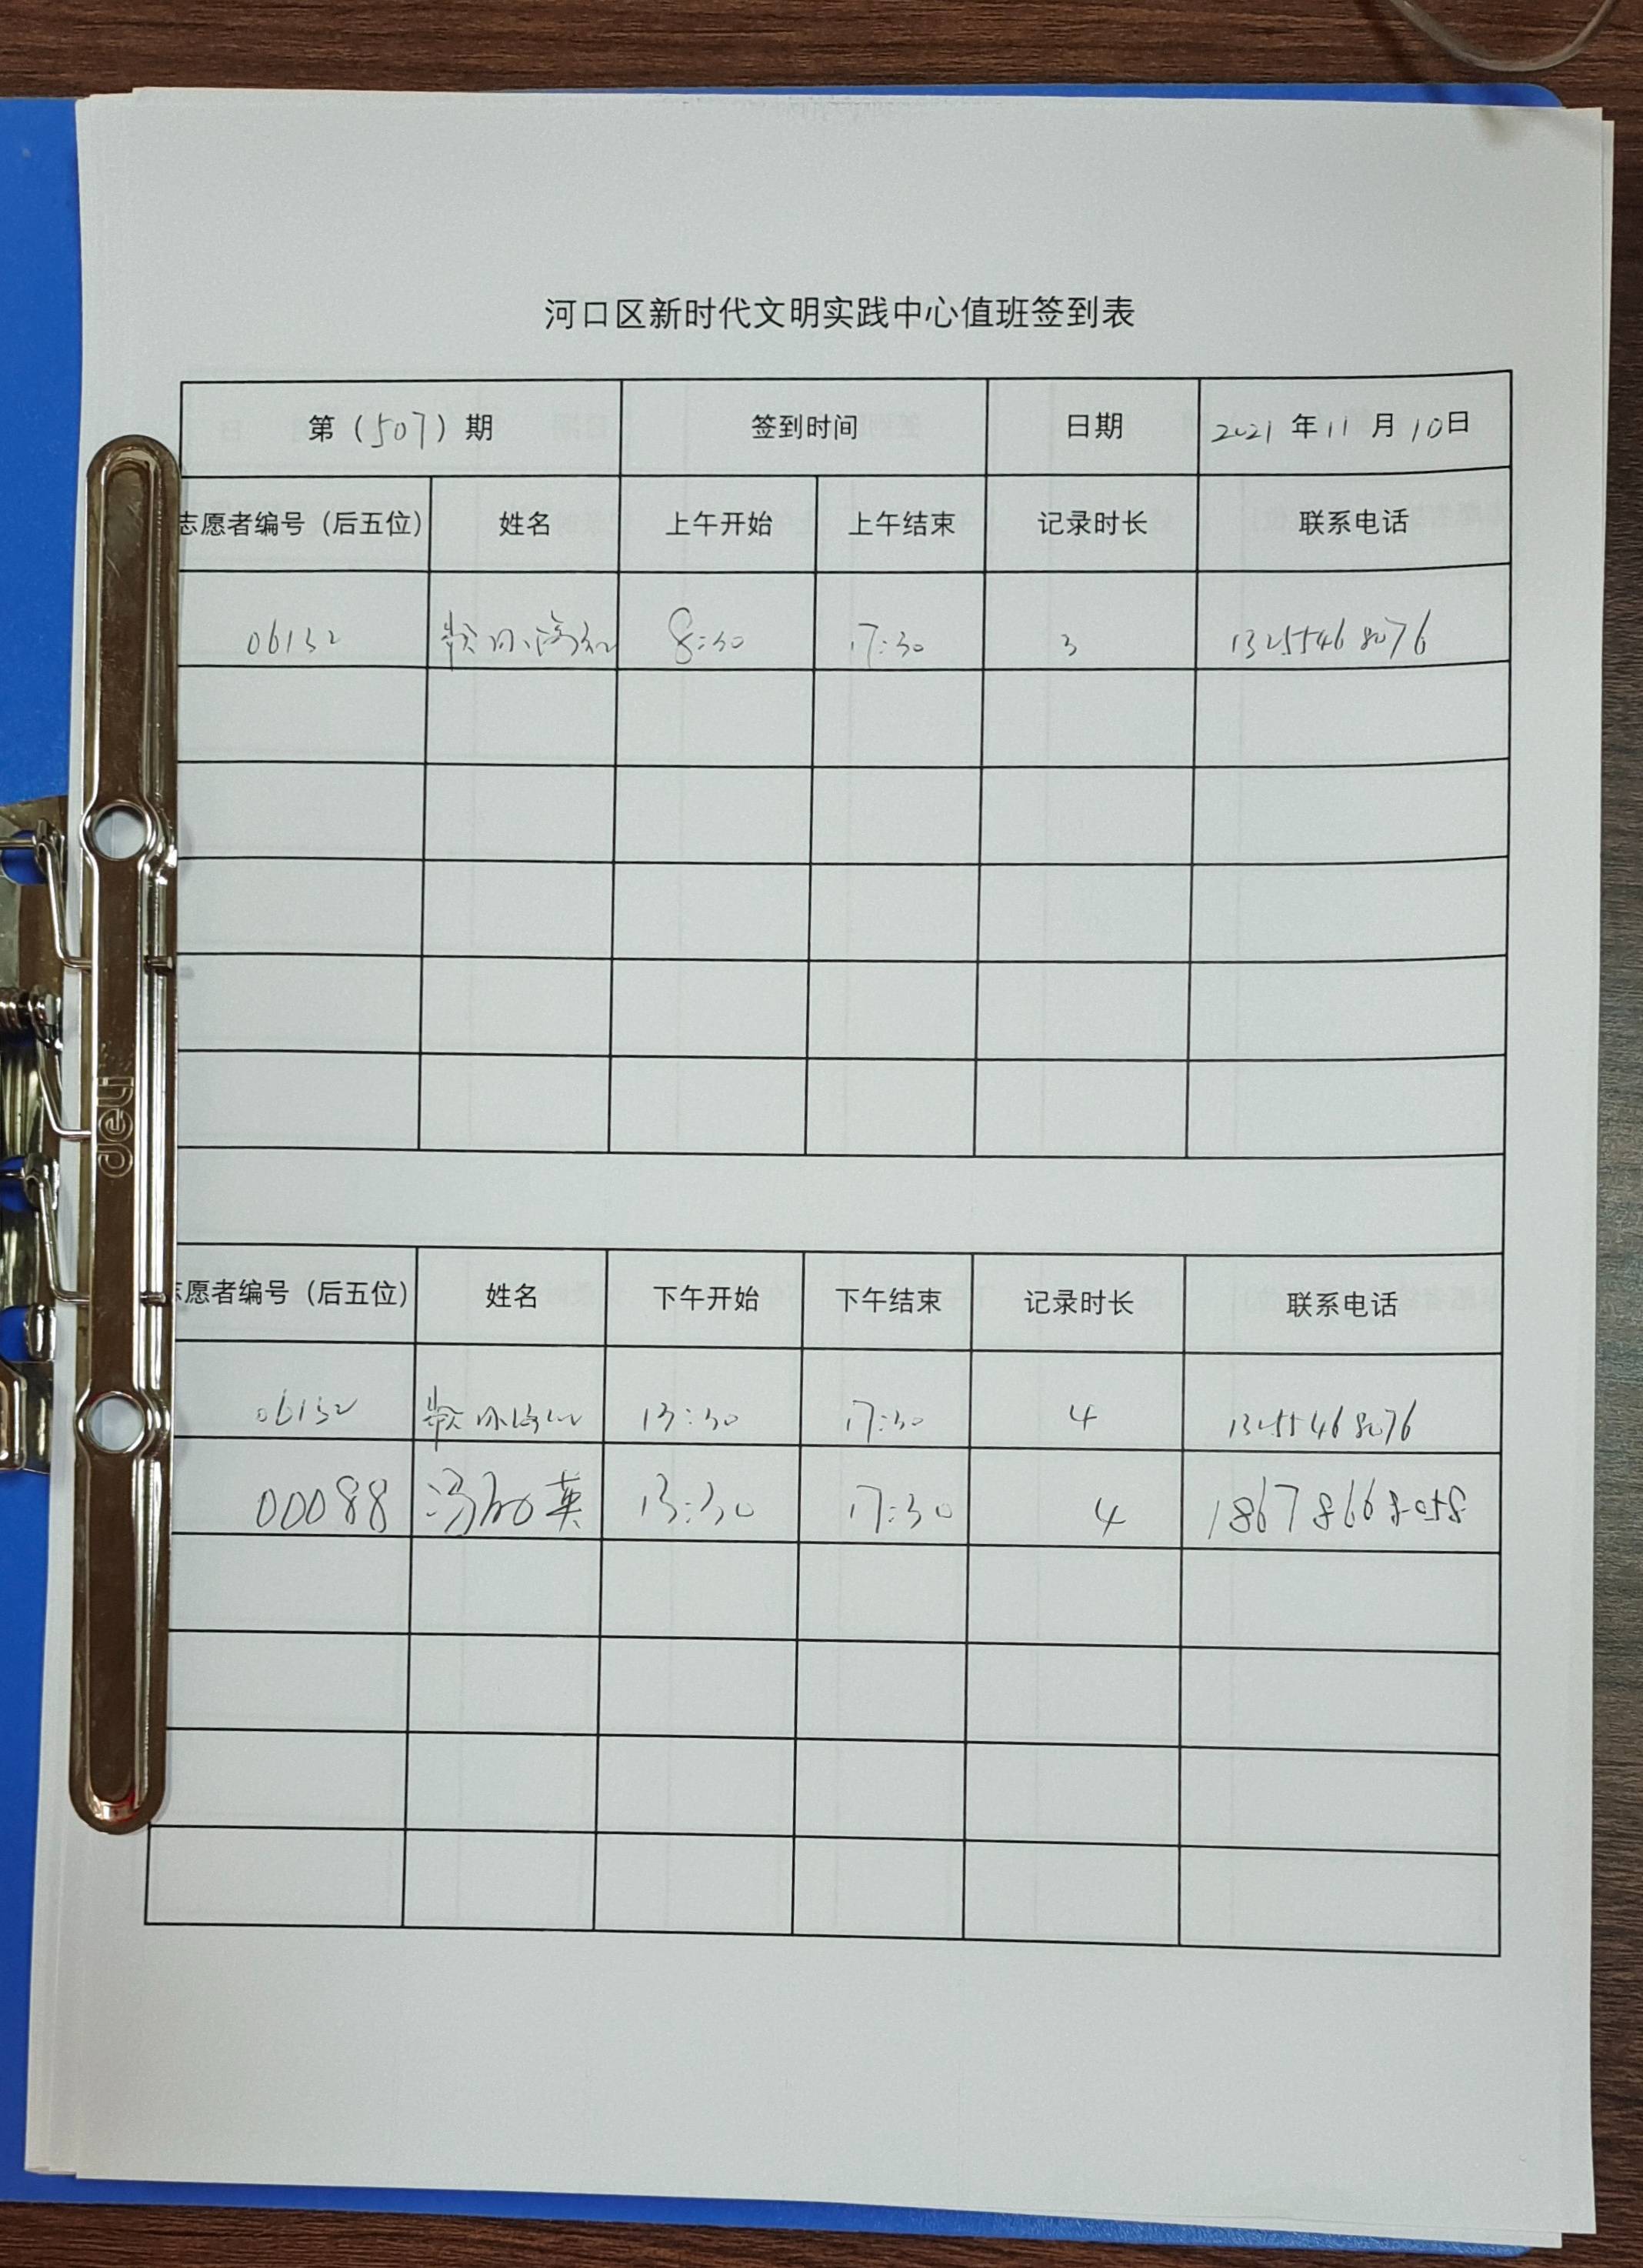 河口区新时代文明实践中心值班签到表
第（507）期 签到时间 日期 2021年11月10日
志愿者编号（后五位） 姓名 上午开始 上午结束 记录时长 联系电话
06132 8:30 17:30 3 13255468076
志愿者编号（后五位） 姓名 下午开始 下午结束 记录时长 联系电话
06132 13:30 17:30 4 13255468076
00088 冯敏英 13:30 17:30 4 18678668058
deli